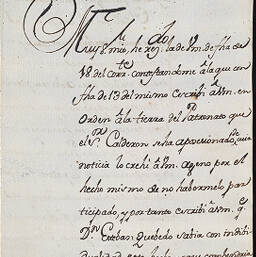 Muy S.r mio, he rez.do la de Vm. de fha de
18 del corr.te contestandome á la que con
fha de 13 del mismo escribí á Vm. en
orden á la tierra del Patronato que
el S.r Calderon se ha aposesionado, cuia
noticia lo crehi á Vm. ageno por el
hecho mismo de no habermelo par
ticipado y por tanto escribi á Vm. q.e
D.n Esteban Quebedo sabia con indibi